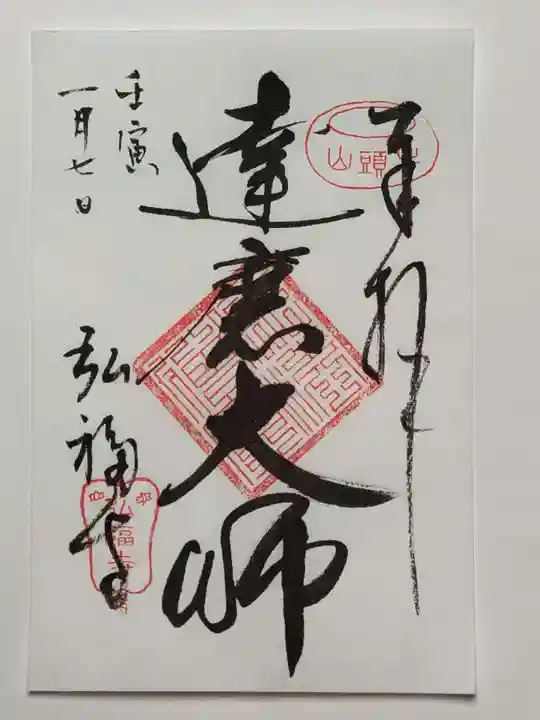 奉拝
山頭
達磨大師
壬寅
一月七日
弘福寺
弘福寺